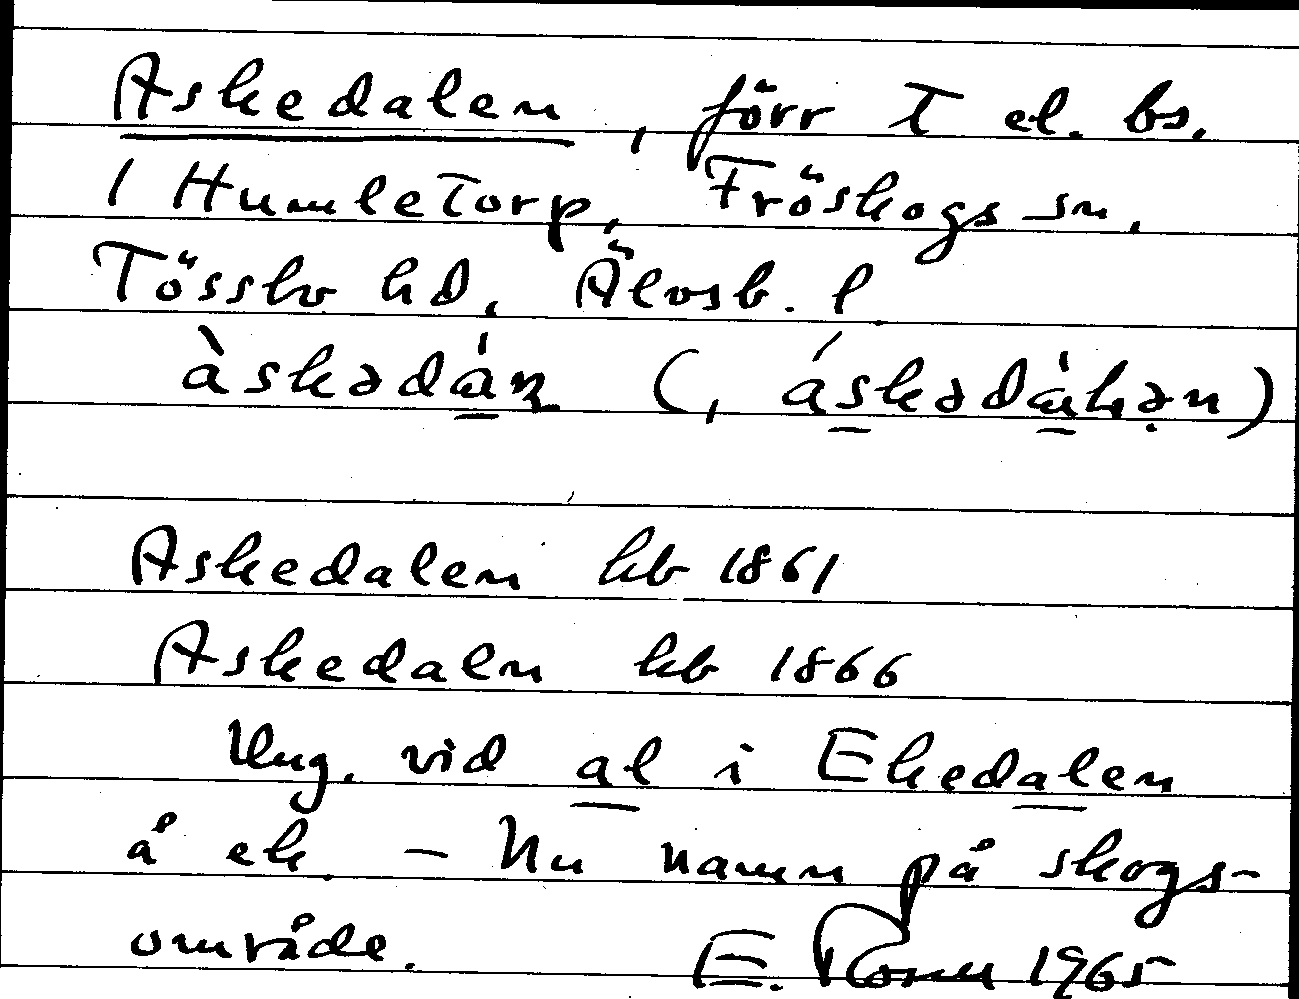 Askedalen, förr T el. bs.
1 Humletorp, Fröskogs sn,
Tössbo hd, Älvsb. l
àskədán (, áskədàhən)
Askedalen hb 1861
Askedaln hb 1866
Ung. vid al i Ekedalen
å ek. – Nu namn på skogs-
område. E. 1965